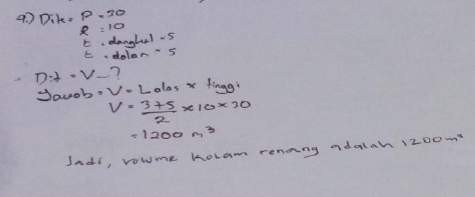 9.) Dik = P = 30
l = 10
t. dangkal = 5
t. dalam = 5
Dit = V_ ?
Jawab = V = L alas x tinggi
V = 3+5/2 x 10 x 30
= 1200 m³
Jadi, volume kolam renang adalah 1200 m³